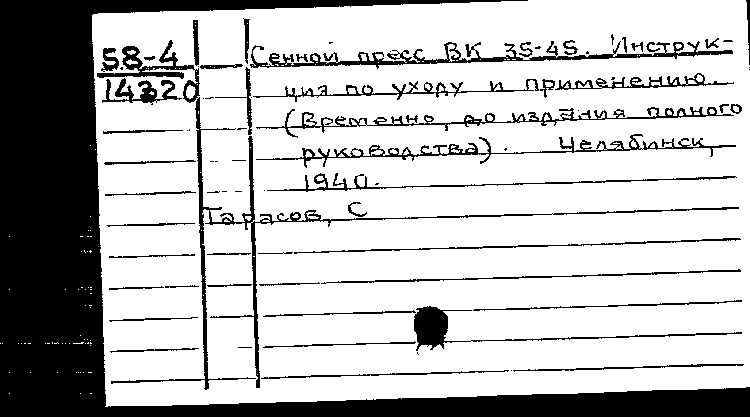 58-4
14320
Сенной пресс ВК 35-45. Инструк-
ция по уходу и применению.
(Временно, до издания полного
руководства). Челябинск,
1940.
Тарасов, С